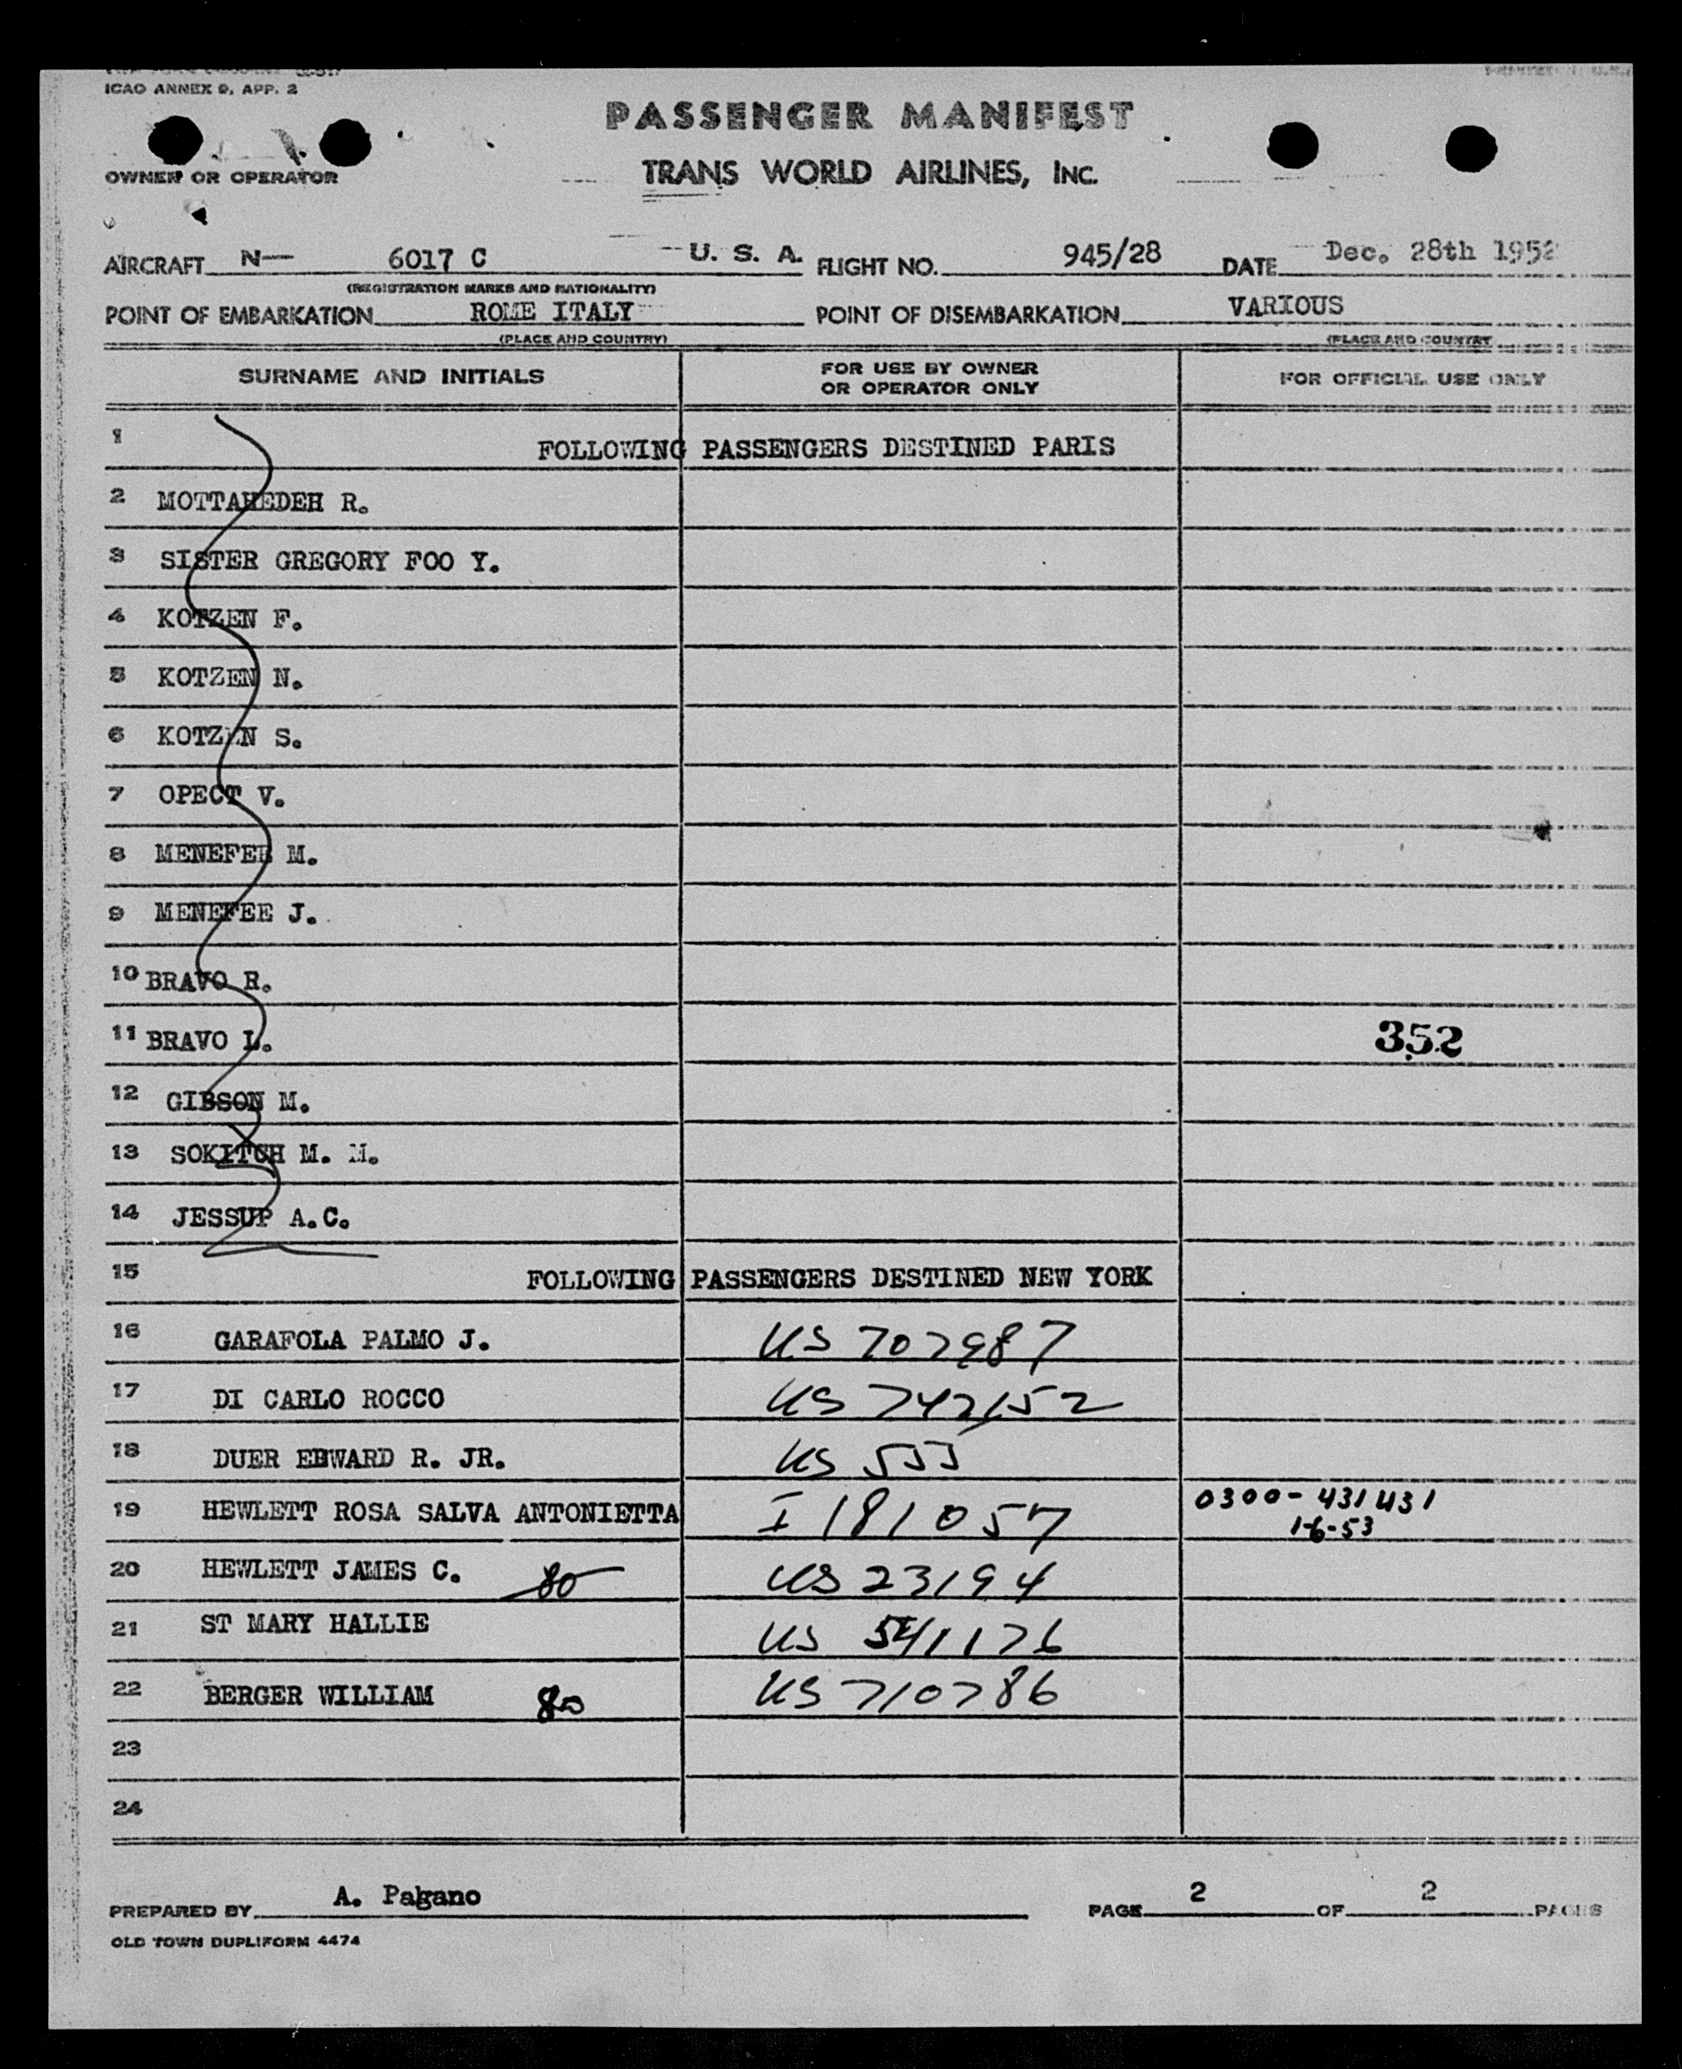 ICAO ANNEX 9, APP. 2
PASSENGER MANIFEST
OWNER OR OPERATOR TRANS WORLD AIRLINES, INC.
AIRCRAFT N— 6017 C U. S. A. FLIGHT NO. 945/28 DATE Dec. 28th 1952
(REGISTRATION MARKS AND NATIONALITY)
POINT OF EMBARKATION ROME ITALY POINT OF DISEMBARKATION VARIOUS
(PLACE AND COUNTRY) (PLACE AND COUNTRY
SURNAME AND INITIALS FOR USE BY OWNER OR OPERATOR ONLY FOR OFFICIAL USE ONLY
1 FOLLOWING PASSENGERS DESTINED PARIS
2 MOTTAHEDEH R.
3 SISTER GREGORY FOO Y.
4 KOTZEN F.
5 KOTZEN N.
6 KOTZEN S.
7 OPECT V.
8 MENEFEE M.
9 MENEFEE J.
10 BRAVO R.
11 BRAVO L. 352
12 GIBSON M.
13 SOKITCH M. M.
14 JESSUP A.C.
15 FOLLOWING PASSENGERS DESTINED NEW YORK
16 GARAFOLA PALMO J. US 707987
17 DI CARLO ROCCO US 742152
18 DUER EDWARD R. JR. US 555
19 HEWLETT ROSA SALVA ANTONIETTA I 181057 0300-431431
1-6-53
20 HEWLETT JAMES C. 80 US 23194
21 ST MARY HALLIE US 541176
22 BERGER WILLIAM 80 US 710786
23
24
PREPARED BY A. Pagano PAGE 2 OF 2 PAGES
OLD TOWN DUPLIFORM 4474